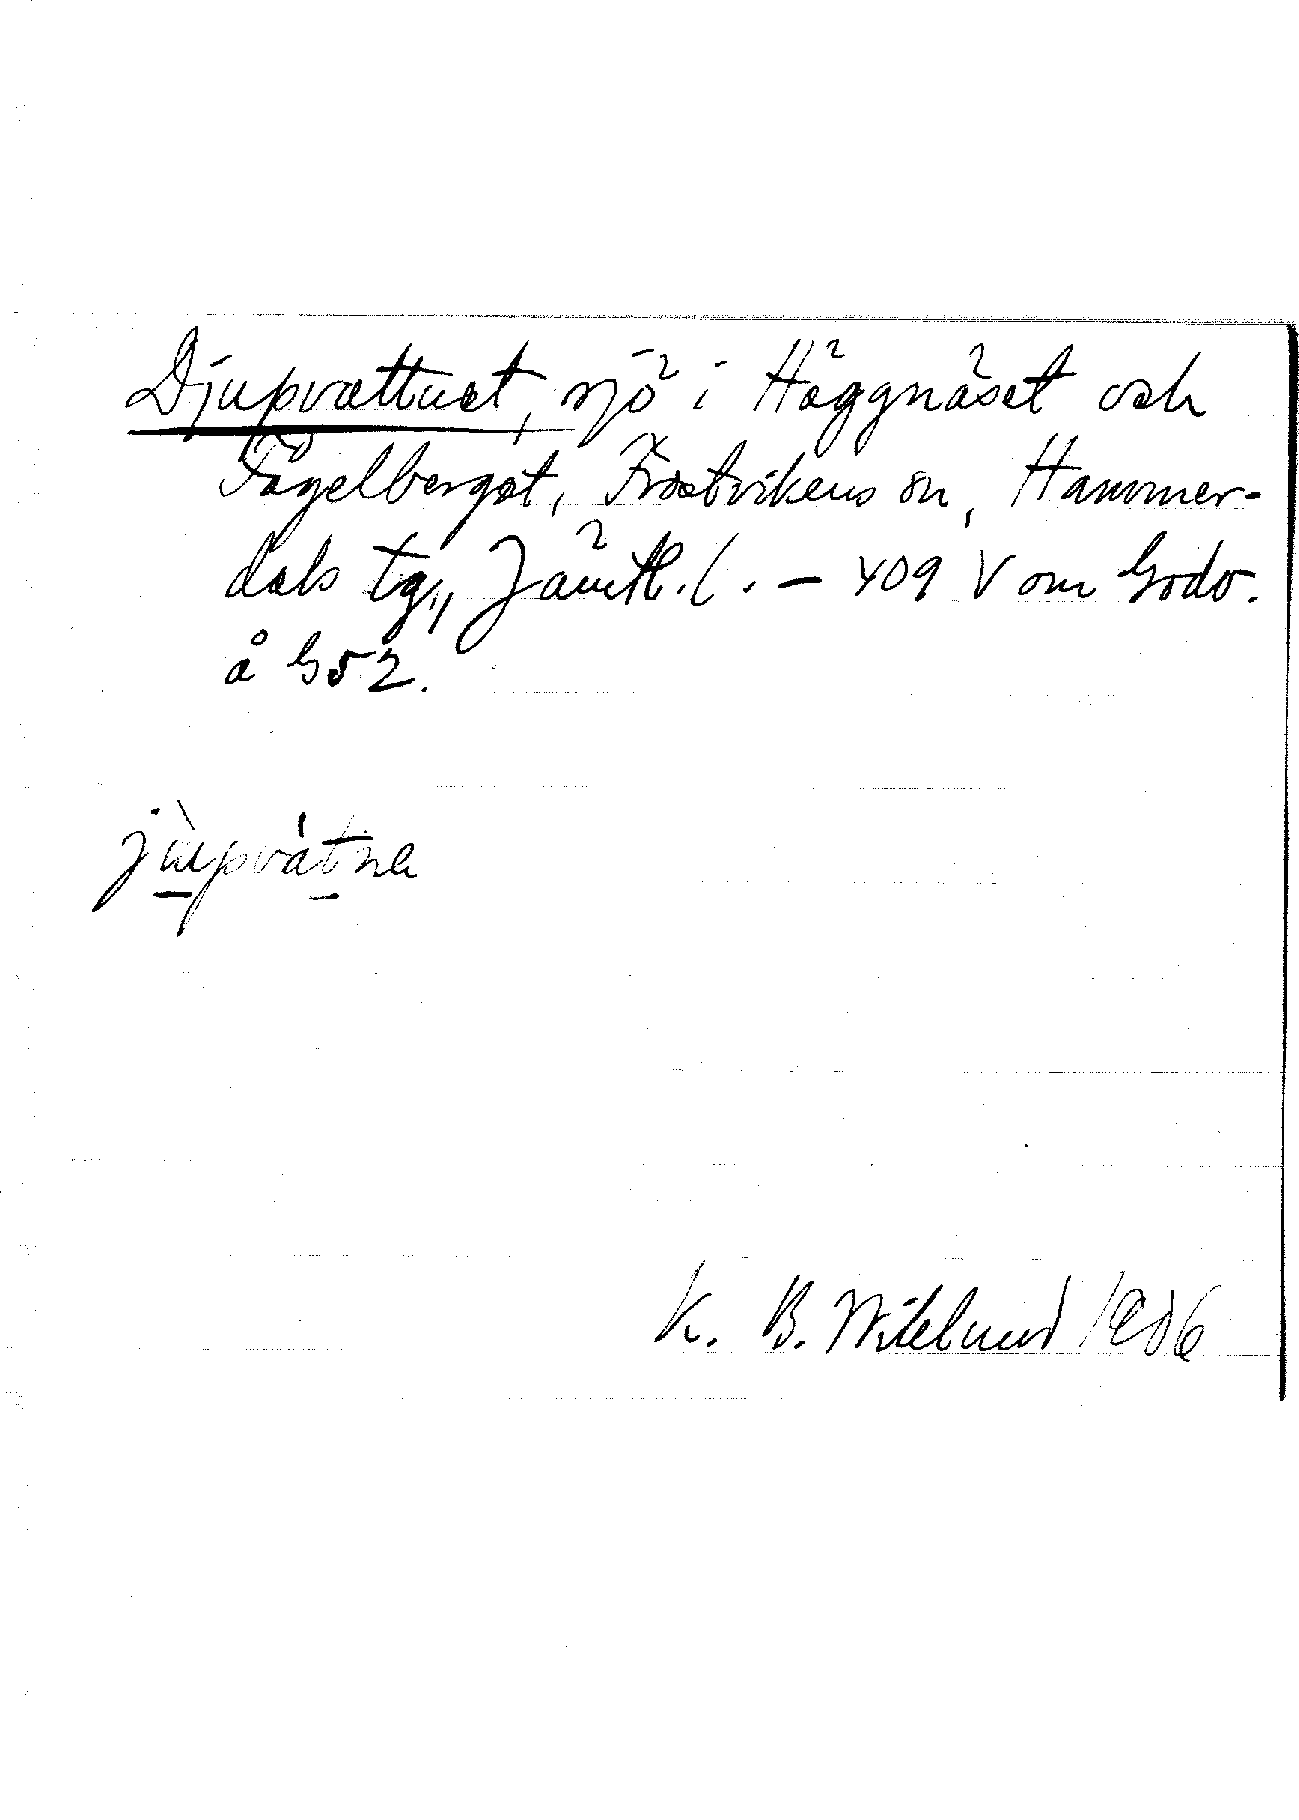 Djupvattnet, sjö i Häggnäset och
Fågelberget, Frostvikens sn, Hammer-
dals tg, Jämtl. l. – 409 V om Godo.
å G52.
jùpvátna
K. B. Wiklund 1906